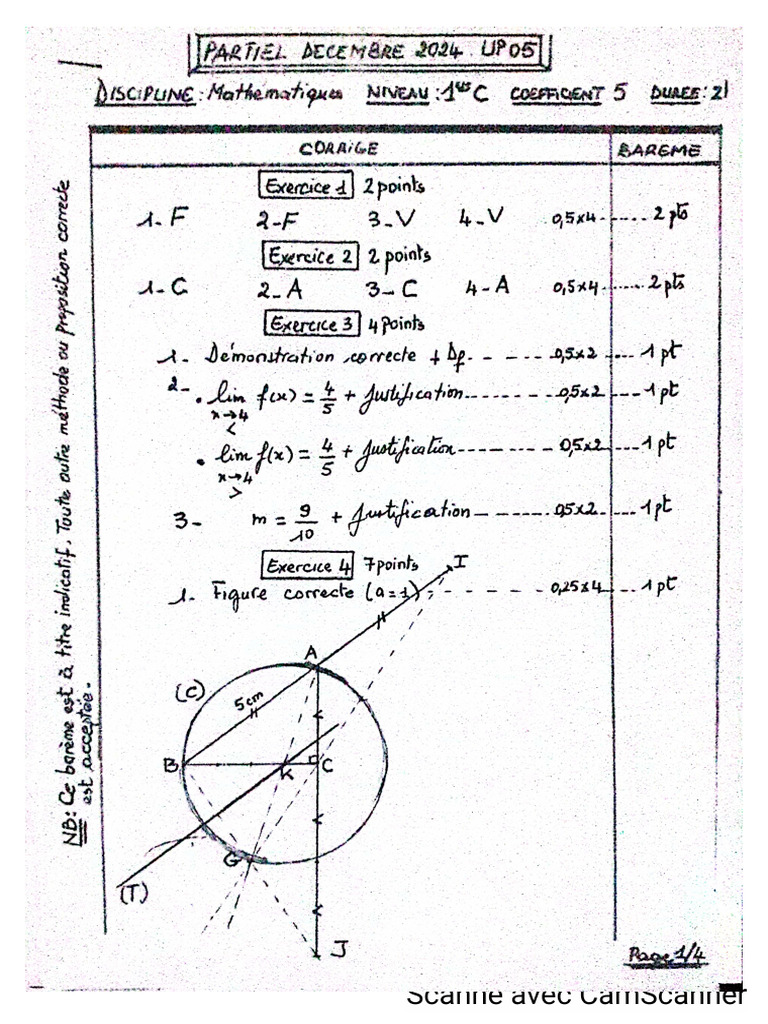 PARTIEL DECEMBRE 2024 UP05
DISCIPLINE: Mathématiques NIVEAU: 1ère C COEFFICIENT 5 DUREE: 2
CORRIGE BAREME
Exercice 1 2 points
1- F 2-F 3-V 4-V 0,5x4 ...... 2 pts
Exercice 2 2 points
1-C 2-A 3-C 4-A 0,5x4 ...... 2 pts
Exercice 3 4 points
1- Démonstration correcte + Df. - - - - - 0,5x2 .... 1 pt
2- • lim f(x) = 4/5 + Justification ------- 0,5x2 .... 1 pt
x→4
<
• lim f(x) = 4/5 + Justification ------- 0,5x2 .... 1 pt
x→4
>
3- m = 9/10 + Justification ------- 0,5x2 .... 1 pt
Exercice 4 7 points
1- Figure correcte (a=1) - - - - - - 0,25x4 .... 1 pt
I
A
(C)
5cm
B
K
C
G
(T)
J
NB: Ce barème est à titre indicatif, Toute autre méthode ou proposition correcte
est acceptée.
Page 1/4
Scanné avec CamScanner